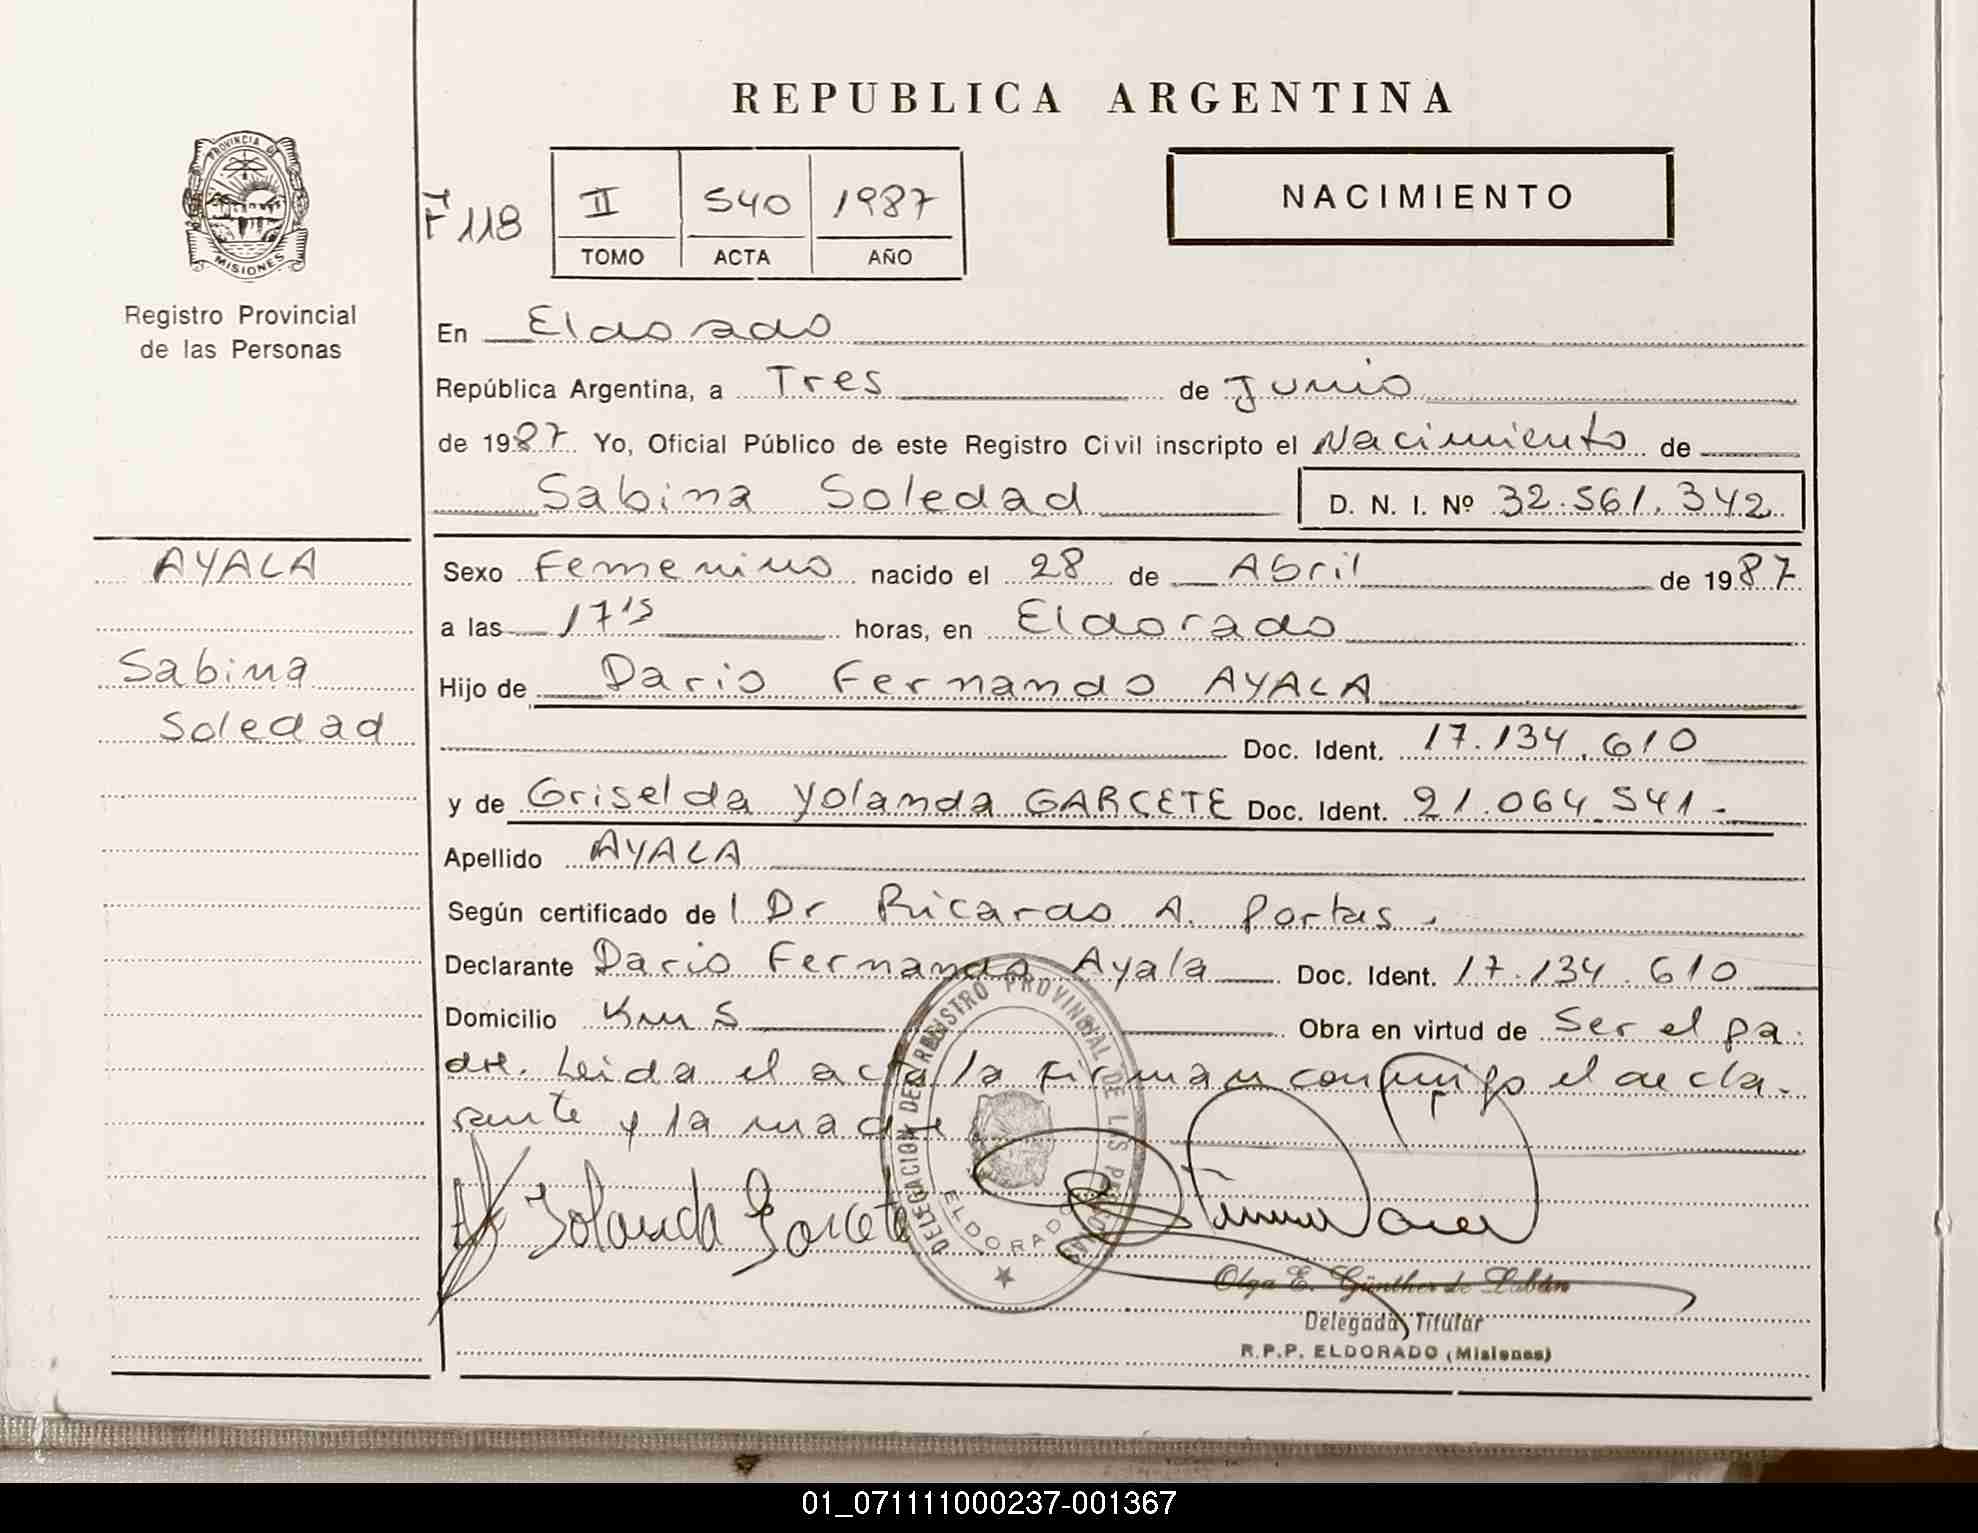 REPUBLICA ARGENTINA
PROVINCIA DE
MISIONES
Registro Provincial
de las Personas
F 118
II 540 1987
TOMO ACTA AÑO
NACIMIENTO
En Eldorado
República Argentina, a Tres de Junio
de 1987 Yo, Oficial Público de este Registro Civil inscripto el Nacimiento de
Sabina Soledad D. N. I. Nº 32.561.342
AYALA
Sabina
Soledad
Sexo Femenino nacido el 28 de Abril de 1987
a las 17 15 horas, en Eldorado
Hijo de Dario Fernando AYALA
Doc. Ident. 17.134.610
y de Griselda Yolanda GARCETE Doc. Ident. 21.064.541.-
Apellido AYALA
Según certificado de l Dr Ricardo A. Portas.
Declarante Dario Fernando Ayala Doc. Ident. 17.134.610
Domicilio Km 5 Obra en virtud de Ser el pa-
dre. Leida el acta la firman conmigo el decla-
rante y la madre
Yolanda Garcete
DELEGACION DEL REGISTRO PROVINCIAL DE LAS PERSONAS
ELDORADO
Olga E. Günther de
Delegada Titular
R.P.P. ELDORADO (Misiones)
01_071111000237-001367